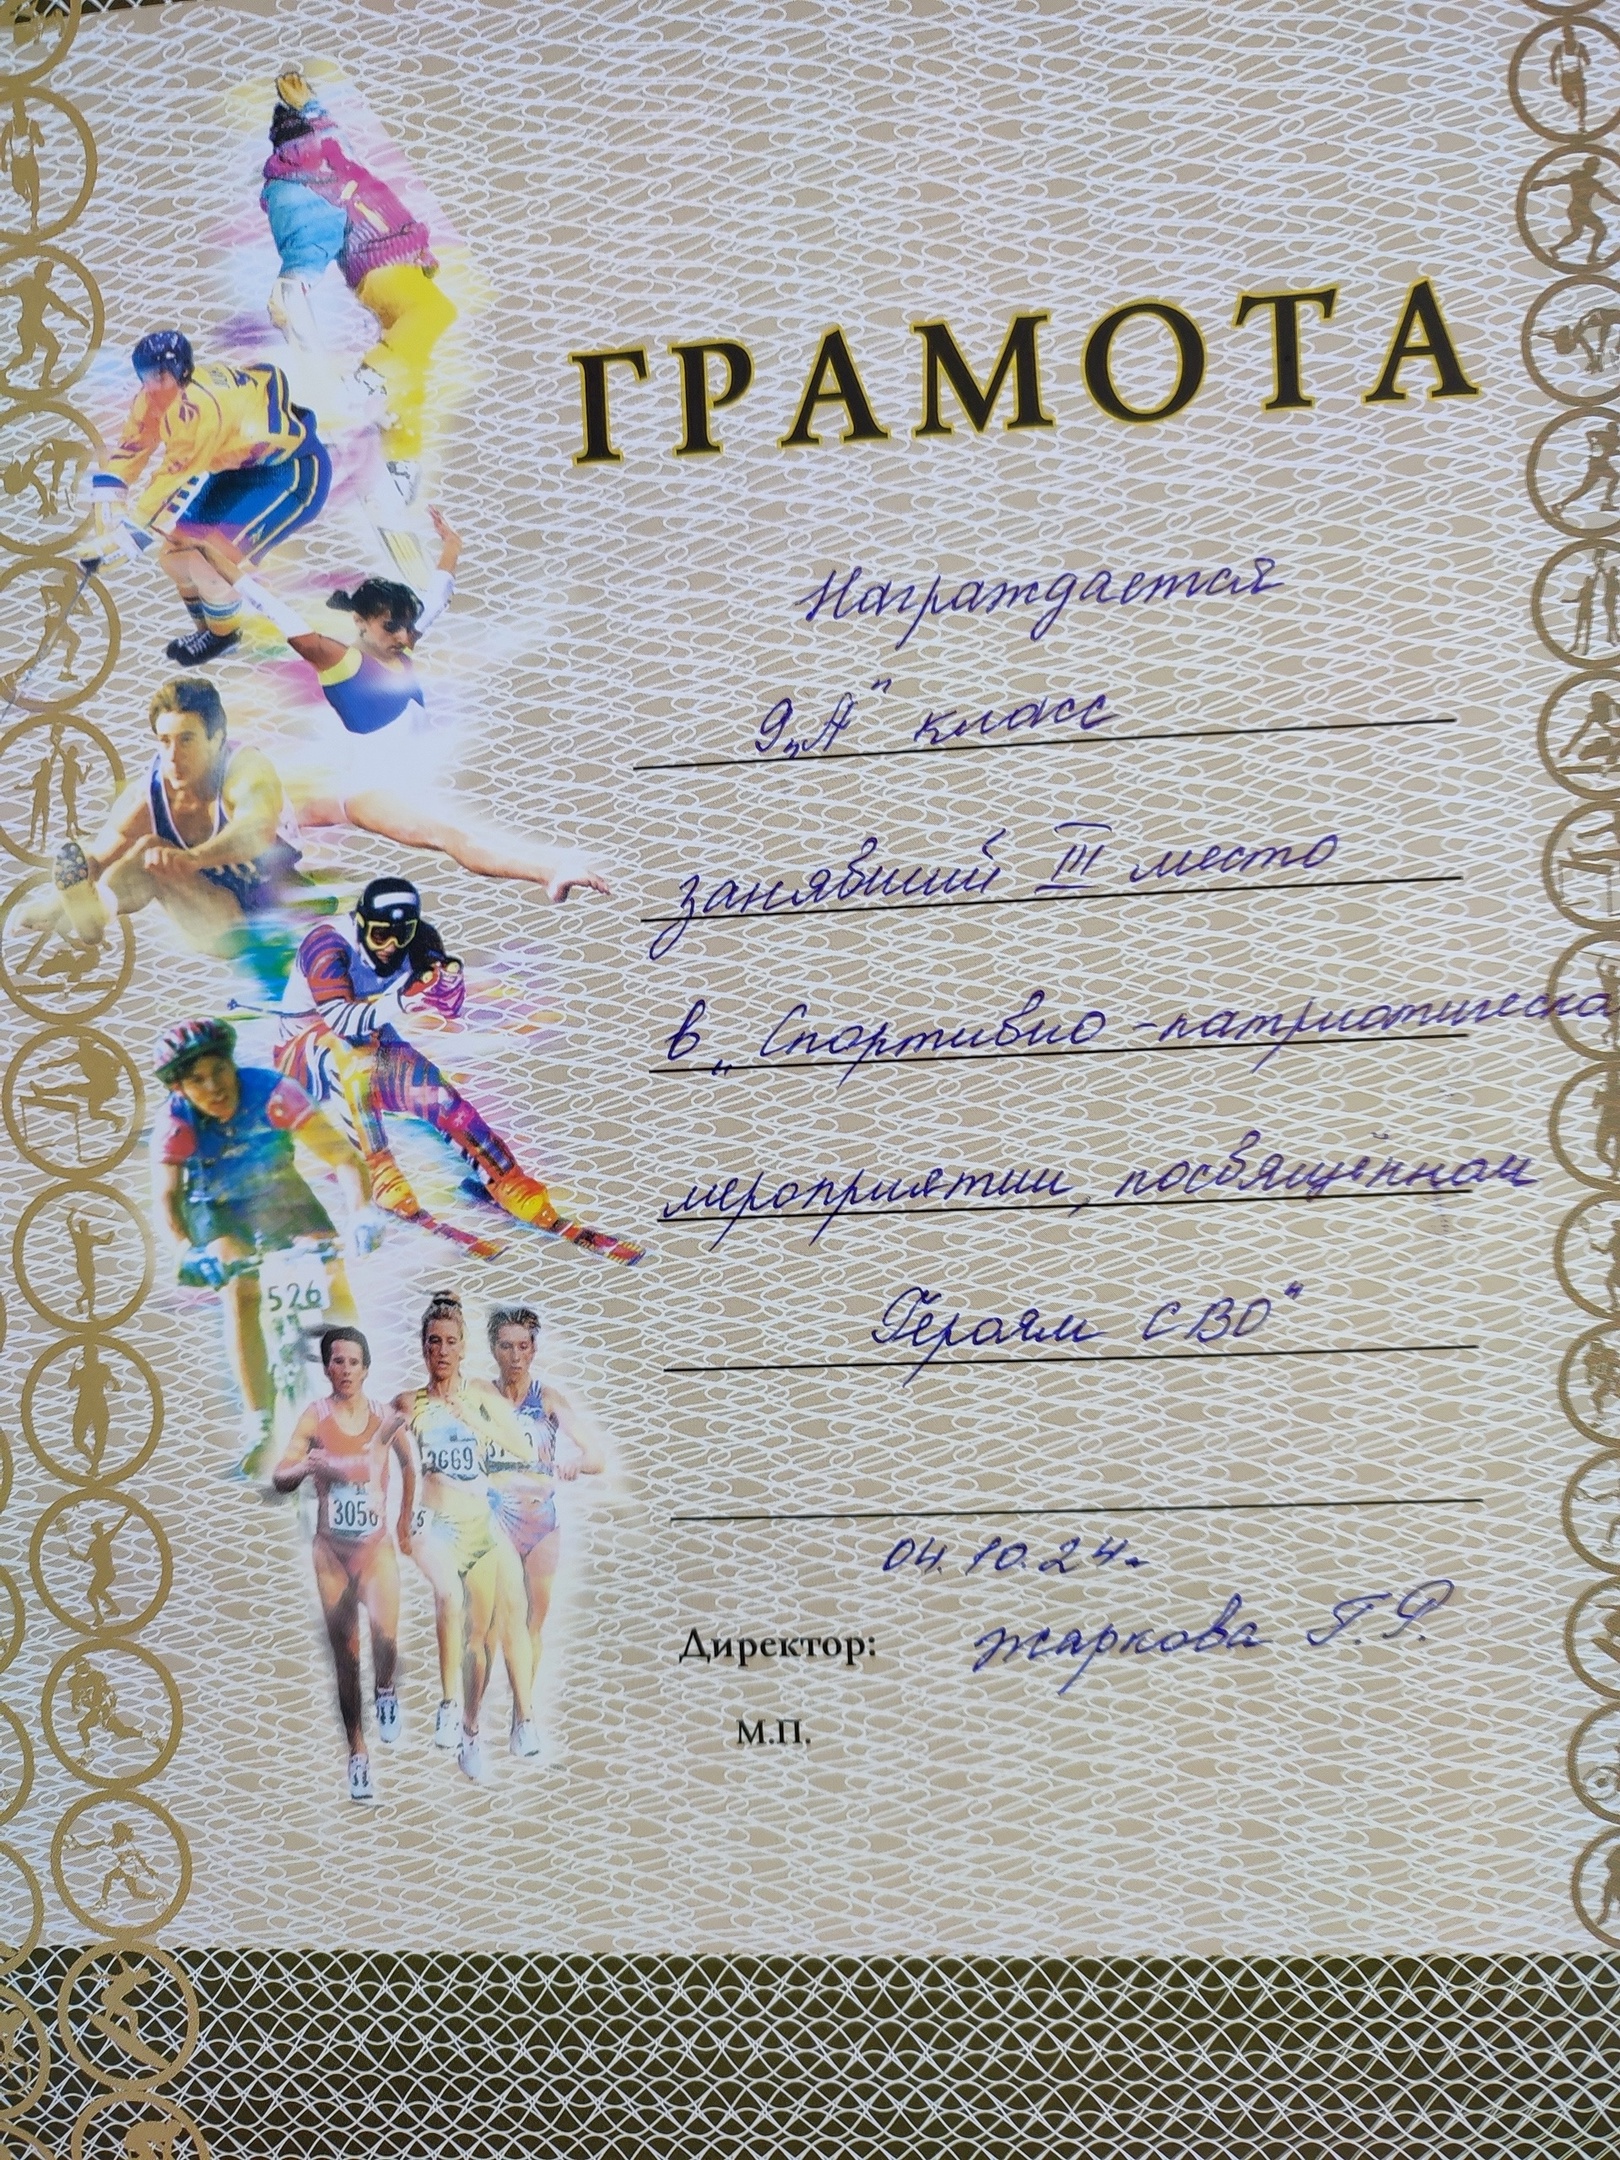 ГРАМОТА
Награждается
9„А" класс
занявший III место
в „Спортивно-патриотическо
мероприятии, посвящённом
Героям СВО"
04.10.24г.
Директор: Жаркова Г.Р.
М.П.
526
3669
3056